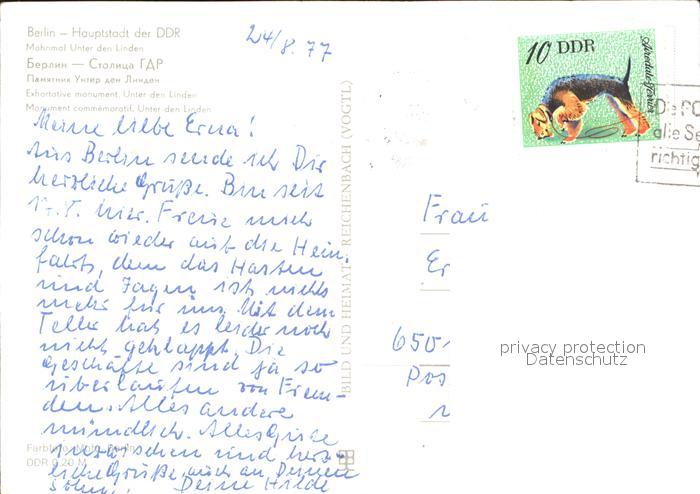 Berlin – Hauptstadt der DDR
Mahnmal Unter den Linden
Берлин — Столица ГДР
Памятник Унтер ден Линден
Exhortative monument, Unter den Linden
Monument commémoratif, Unter den Linden
24/8. 77
Meine liebe Erna!
Aus Berlin sende ich Dir
herzliche Grüße. Bin seit
hier. Freue mich
schon wieder auf die Heim-
fahrt, denn das Hasten
und Jagen ist nichts
mehr für uns. Mit dem
Teller hat es leider noch
nicht geklappt. Die
Geschäfte sind ja so
überlaufen von Frem-
den. Alles andere
mündlich. Alles Gute
inzwischen und herz-
liche Grüße, auch an Deinen
Sohn! Deine Hilde
Farbfoto:
DDR 0,20 M
BILD UND HEIMAT REICHENBACH (VOGTL)
10 DDR
Airedale-Terrier
alle Se
richtig
Frau
Er
650
Pos
privacy protection
Datenschutz